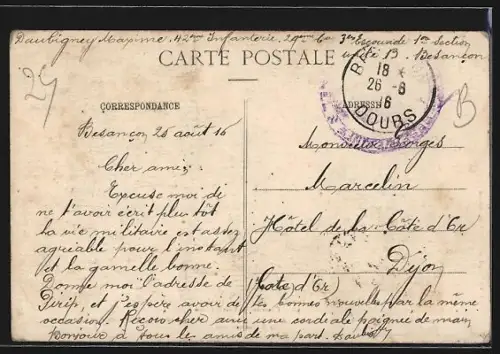 Daubigney Maxime 42ème Infanterie 29ème Cie 3ème Escouade 1ère Section
CARTE POSTALE
unité B. Besançon
18
26 - 8
16
DOUBS
29
B
CORRESPONDANCE
ADRESSE
Besançon 25 août 16
Cher ami,
Excuse moi di
ne t'avoir écrit plu tôt
la vie militaire est assez
agriable pour l'instant
et la gamelle bonne.
Donne moi l'adresse de
et j'espère avoir de
tes bonnes nouvelles par la même
occasion. Reçoi cher ami une cordiale poignée de main
Bonjour à tous les amis de ma part. Daubigney
Monsieur Georges
Marcelin
Hôtel de la Côte d'Or
Dijon
(Cote d'Or)